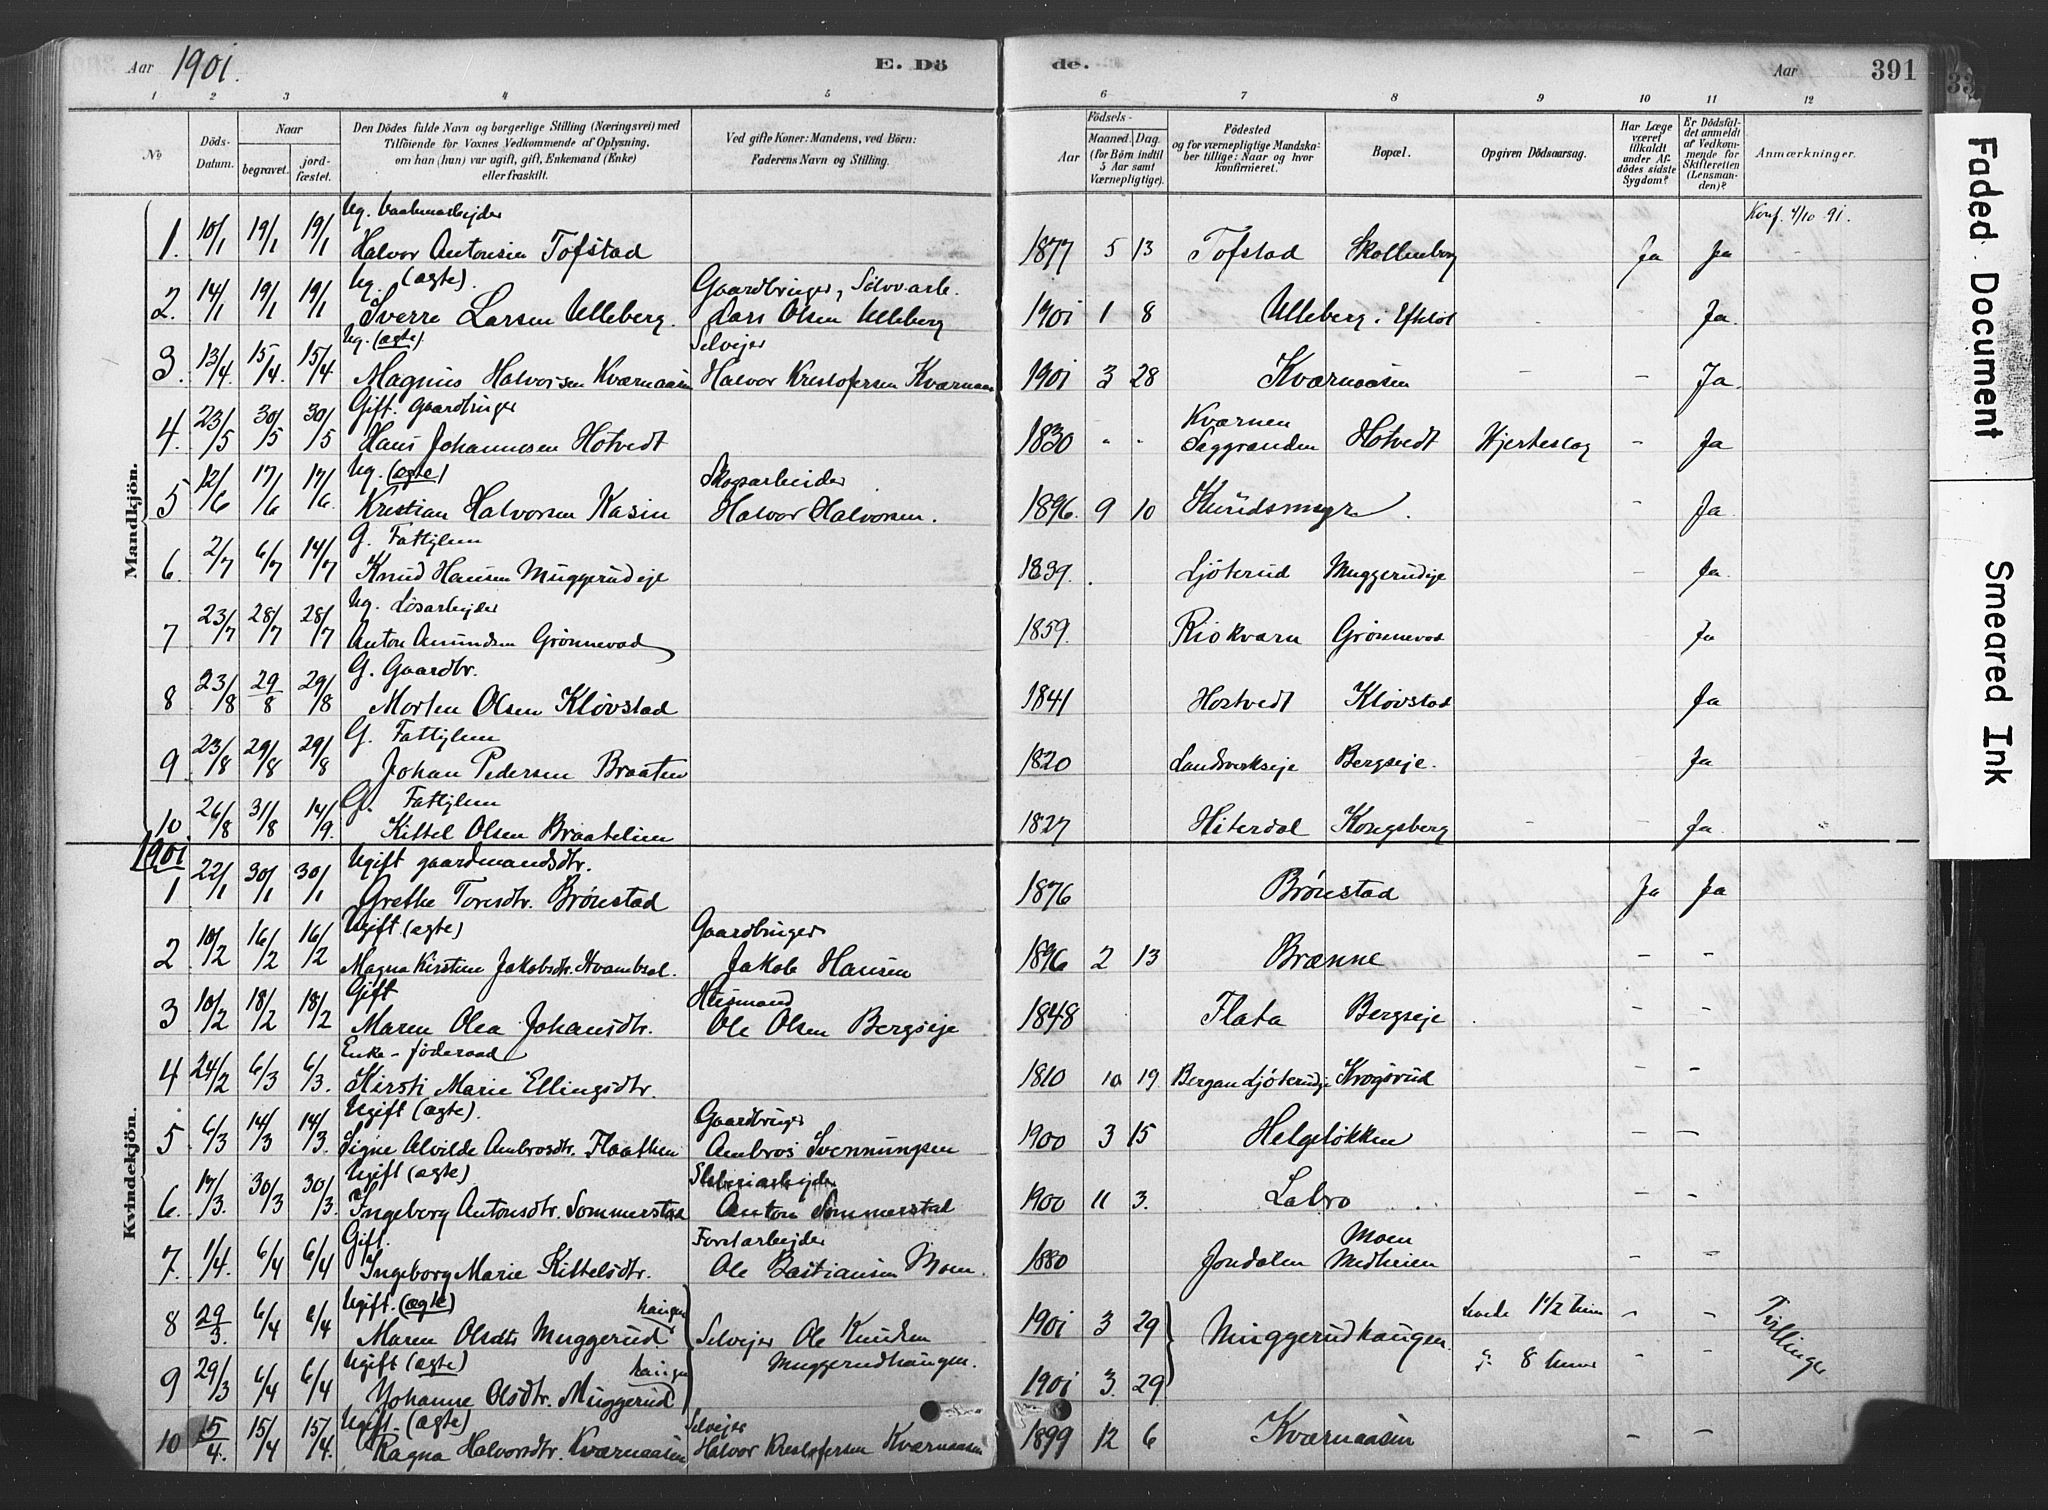 Aar 1901. E. Döde. Aar 391
1 2 3 4 5 6 7 8 9 10 11 12
No
Döds-Datum.
Naar
begravet.
jordfæstet.
Den Dödes fulde Navn og borgerlige Stilling (Næringsvei) med
Tilföiende for Voxnes Vedkommende af Oplysning,
om han (hun) var ugift, gift, Enkemand (Enke)
eller fraskilt.
Ved gifte Koner: Mandens, ved Börn:
Faderens Navn og Stilling.
Födsels-
Aar
Maaned. Dag.
(for Börn indtil
5 Aar samt
Værnepligtige).
Födested
og for værnepligtige Mandskaber tillige: Naar og hvor
konfirmeret.
Bopæl.
Opgiven Dödsaarsag.
Har Læge
været
tilkaldt
under Afdödes sidste
Sygdom?
Er Dödsfaldet anmeldt
af Vedkommende for
Skifteretten
(Lensmanden)?
Anmærkninger.
Mandkjön.
Ug.
Konf. 4/10 91.
1. 10/1 19/1 19/1 Halvor Antonsen Tofstad 1877 5 13 Tofstad Skollenborg Ja Ja -
Ug. (ægte). Gaardbruger, Sølvarb.
2. 14/1 19/1 19/1 Sverre Larsen Ulleberg. Lars Olsen Ulleberg 1901 1 8 Ulleberg i Efteløt - - Ja.
Ug. (ægte) Selvejer
3. 13/4. 15/4. 15/4 Magnus Halvorsen Kværnaasen Halvor Kristofersen Kværnaas 1901 3 28 Kværnaasen - - Ja.
Gift. Gaardbruger
Kværnen
4. 23/5 30/5 30/5 Hans Johannesen Hotvedt 1830 " " Saggranden Hotvedt Hjerteslag - Ja
Ug. (ægte) Skogsarbeider
5 12/6 17/6 17/6. Kristian Halvorsen Kasin Halvor Halvorsen. 1896. 9 10 Knudsmyr. - Ja.
G. Fattiglem
6. 2/7 6/7 14/7 Knud Hansen Muggerudeje 1839. Ljøterud Muggerudeje - Ja.
Ug. Løsarbejder
7 23/7 28/7 28/7 Anton Amundsen Grønnevod 1859. Grønnevod - Ja
G. Gaardbr.
8 23/8 29/8 29/8 Morten Olsen Kløvstad 1841 Hostvedt Kløvstad Ja
G. Fattiglem
9 23/8 29/8 29/8 Johan Pedersen Braaten 1820 Landsverkseje Bergseje. - Ja
G. Fattiglem
10 26/8 31/8 14/9. Kittel Olsen Braatelien 1827 Hiterdal Kongsberg - - Ja.
1901
Kvindekjön.
Ugift gaardmandsdtr.
1 22/1 30/1 30/1 Grethe Toresdtr. Brønstad 1876 Brønstad Ja Ja
Ugift (ægte) Gaardbruger
2 10/2 16/2 16/2 Magna Kirstine Jakobsdtr. Jakob Hansen 1896 2 13 Brænne - -
Gift Husmand
3 10/2 18/2 18/2 Maren Olea Johansdtr. Ole Olsen Bergseje 1848 Flata Bergseje - -
Enke - føderaad
4 24/2 6/3 6/3. Kirsti Marie Ellingsdtr. 1810 10 19 Bergan Ljøterudeje Krogsrud - -
Ugift (ægte). Gaardbruger
5 6/3 14/3 14/3 Signe Alvilde Ambrosdtr. Flaathen Ambros Svennungsen 1900 3 15 Helgeløkken - -
Ugift (ægte) Sliberiarbejder
6. 17/3. 30/3 30/3. Ingeborg Antonsdtr. Sommerstad Anton Sommerstad 1900 11 3. Labro - -
Gift. Forstarbejder Moen
7. 1/4. 6/4 6/4 Ingeborg Marie Kittelsdtr. Ole Bastiansen Moen. 1880 Jondalen Medheien - -
Ugift. (ægte) haugen
8 29/3. 6/4 6/4 Maren Olsdtr Muggerud Selvejer Ole Knudsen 1901 3 29 Muggerudhaugen levede 1 1/2 time - - Tvillinger
Ugift (ægte) haugen Muggerudhaugen.
9 29/3 6/4 6/4 Johanne Olsdtr. Muggerud 1901 3. 29 8 timer - -
Ugift. (ægte) Selvejer
10 15/4. 15/4 15/4. Ragna Halvorsdtr. Kværnaasen Halvor Kristofersen Kværnaasen 1899 12 6 Kværnaasen - -
Faded Document
Smeared Ink